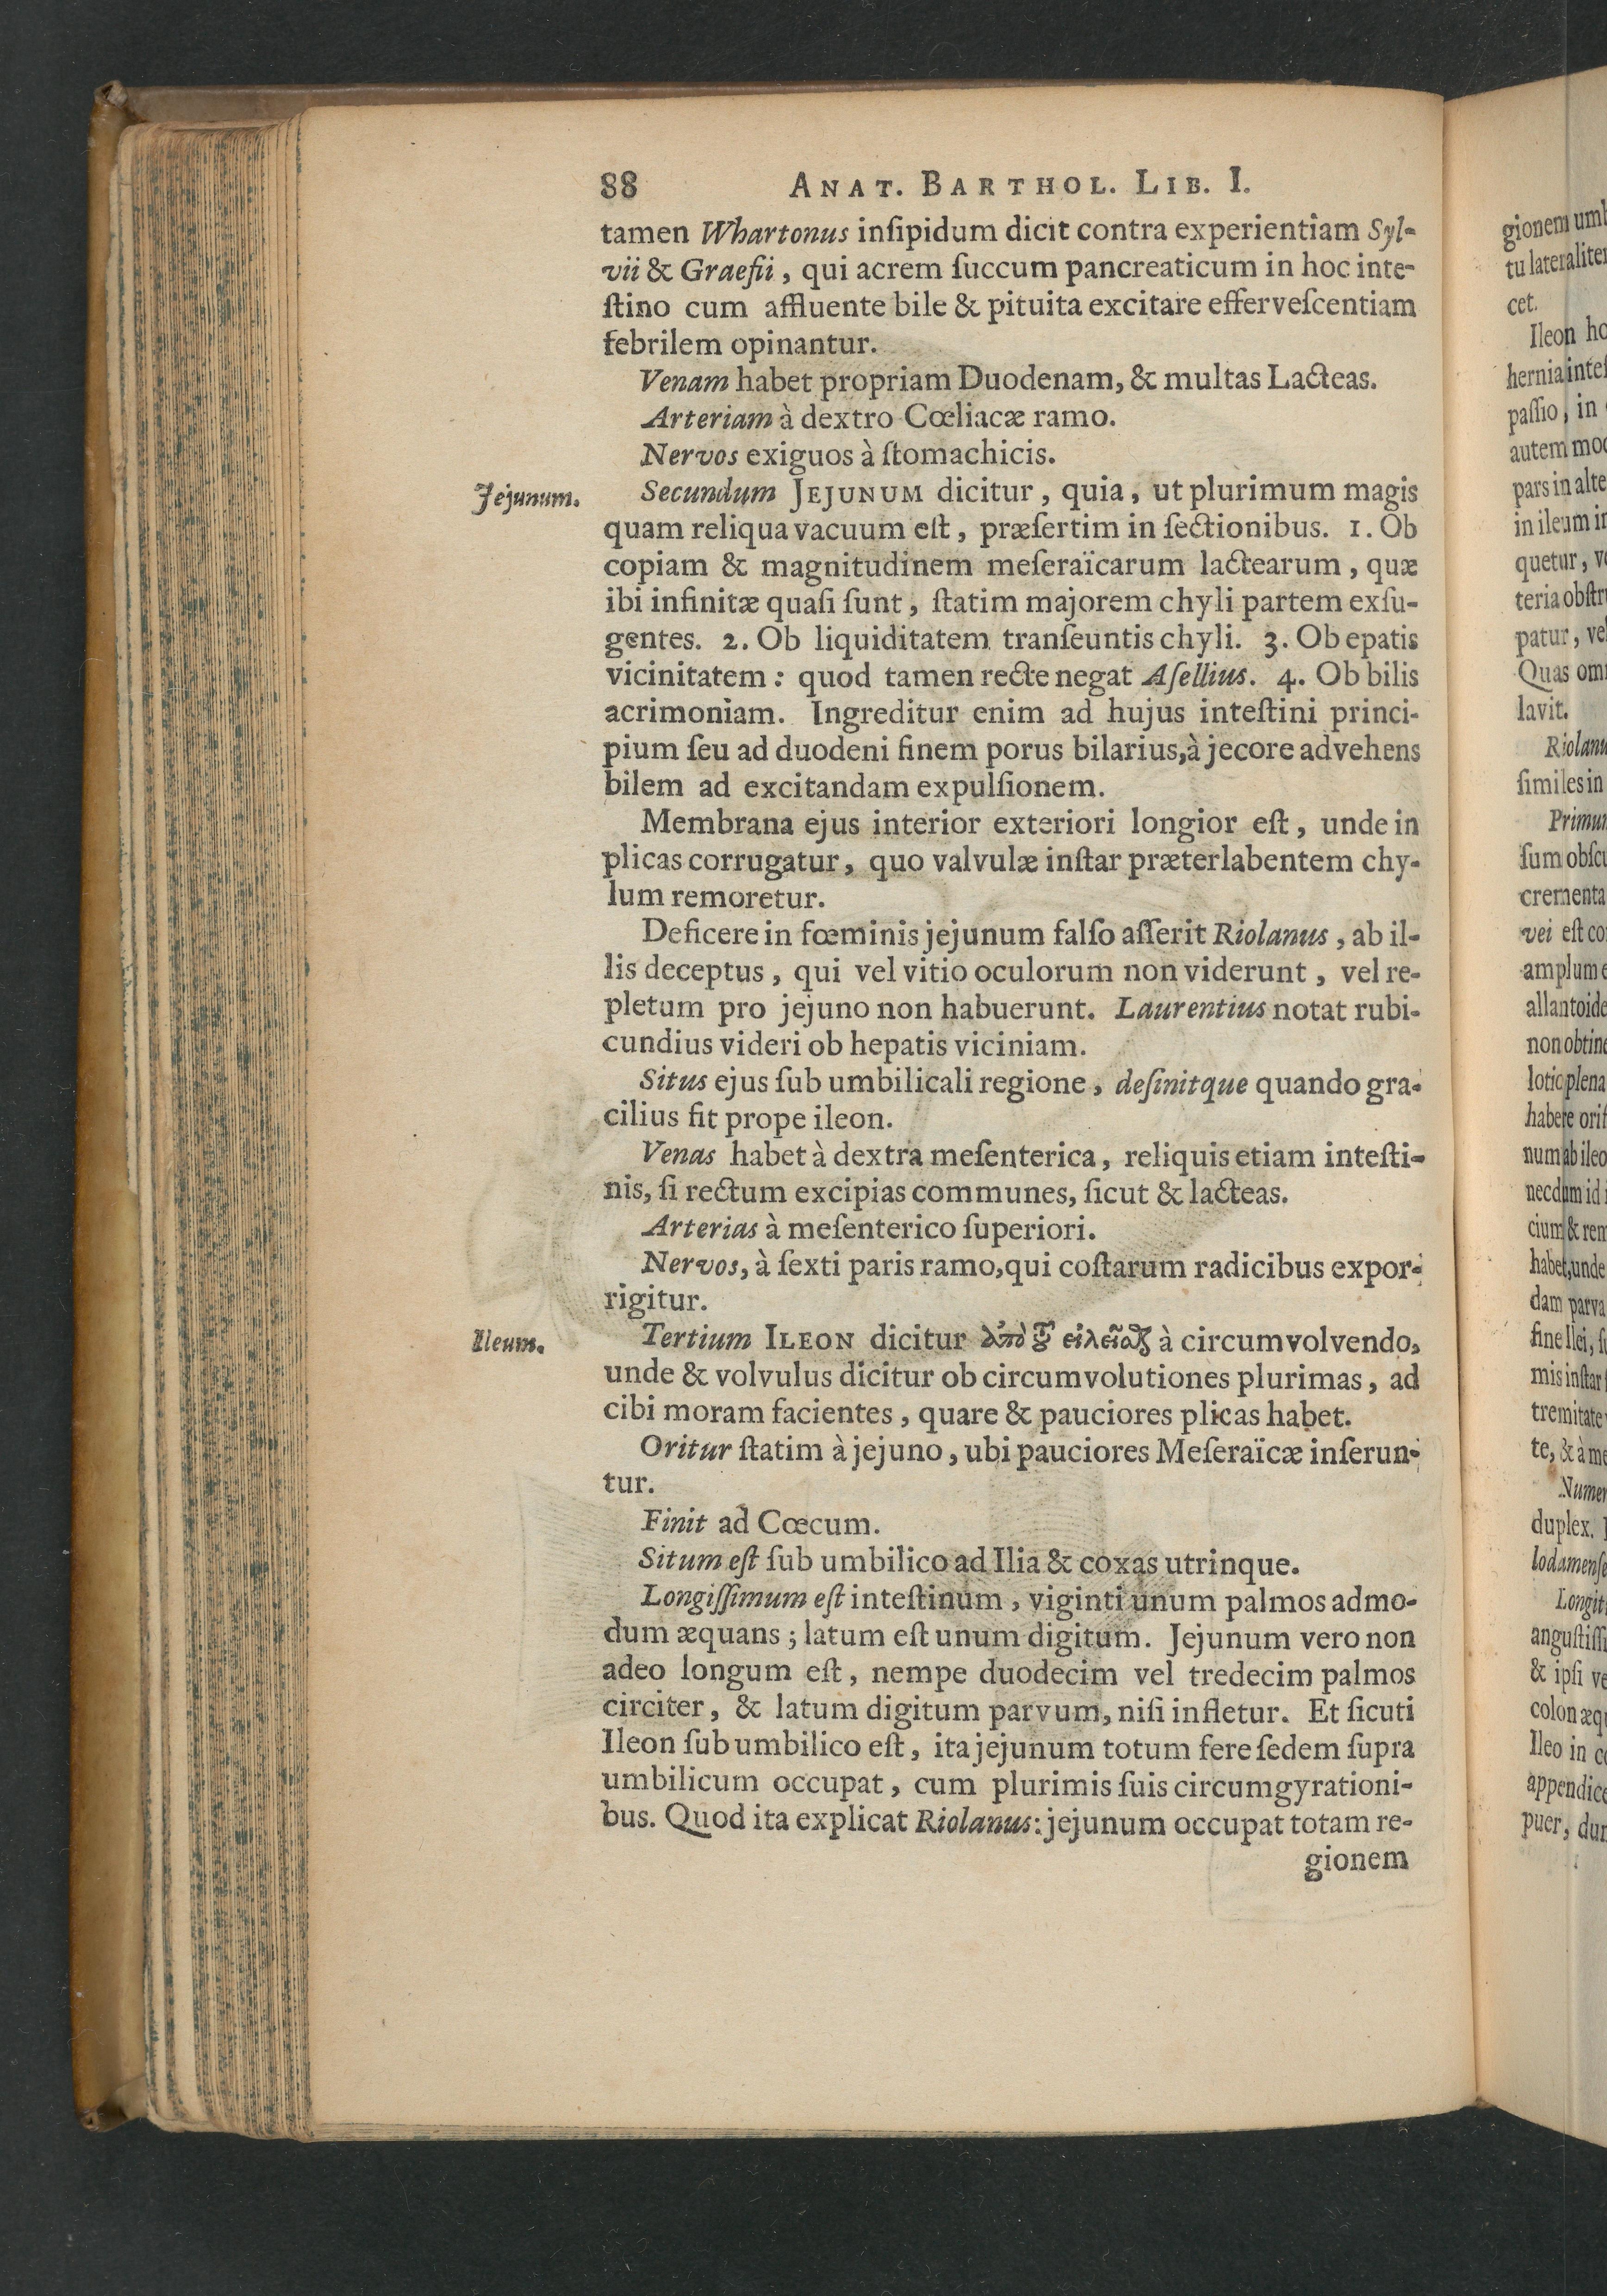 88 ANAT. BARTHOL. LIB. I.
tamen Whartonus inſipidum dicit contra experientiam Syl-
vii & Graefii, qui acrem ſuccum pancreaticum in hoc inte-
ſtino cum affluente bile & pituita excitare efferveſcentiam
febrilem opinantur.
Venam habet propriam Duodenam, & multas Lacteas.
Arteriam à dextro Cœliacæ ramo.
Nervos exiguos à ſtomachicis.
Jejunum.
Secundum JEJUNUM dicitur, quia, ut plurimum magis
quam reliqua vacuum eſt, præſertim in ſectionibus. 1. Ob
copiam & magnitudinem meſeraïcarum lactearum, quæ
ibi infinitæ quaſi ſunt, ſtatim majorem chyli partem exſu-
gentes. 2. Ob liquiditatem tranſeuntis chyli. 3. Ob epatis
vicinitatem: quod tamen recte negat Aſellius. 4. Ob bilis
acrimoniam. Ingreditur enim ad hujus inteſtini princi-
pium ſeu ad duodeni finem porus bilarius, à jecore advehens
bilem ad excitandam expulſionem.
Membrana ejus interior exteriori longior eſt, unde in
plicas corrugatur, quo valvulæ inſtar præterlabentem chy-
lum remoretur.
Deficere in fœminis jejunum falſo aſſerit Riolanus, ab il-
lis deceptus, qui vel vitio oculorum non viderunt, vel re-
pletum pro jejuno non habuerunt. Laurentius notat rubi-
cundius videri ob hepatis viciniam.
Situs ejus ſub umbilicali regione, deſinitque quando gra-
cilius fit prope ileon.
Venas habet à dextra meſenterica, reliquis etiam inteſti-
nis, ſi rectum excipias communes, ſicut & lacteas.
Arterias à meſenterico ſuperiori.
Nervos, à ſexti paris ramo, qui coſtarum radicibus expor-
rigitur.
Ileum.
Tertium ILEON dicitur ἀπὸ τοῦ à circumvolvendo,
unde & volvulus dicitur ob circumvolutiones plurimas, ad
cibi moram facientes, quare & pauciores plicas habet.
Oritur ſtatim à jejuno, ubi pauciores Meſeraïcæ inſerun-
tur.
Finit ad Cœcum.
Situm eſt ſub umbilico ad Ilia & coxas utrinque.
Longiſſimum eſt inteſtinum, viginti unum palmos admo-
dum æquans; latum eſt unum digitum. Jejunum vero non
adeo longum eſt, nempe duodecim vel tredecim palmos
circiter, & latum digitum parvum, niſi infletur. Et ſicuti
Ileon ſub umbilico eſt, ita jejunum totum fere ſedem ſupra
umbilicum occupat, cum plurimis ſuis circumgyrationi-
bus. Quod ita explicat Riolanus: jejunum occupat totam re-
gionem